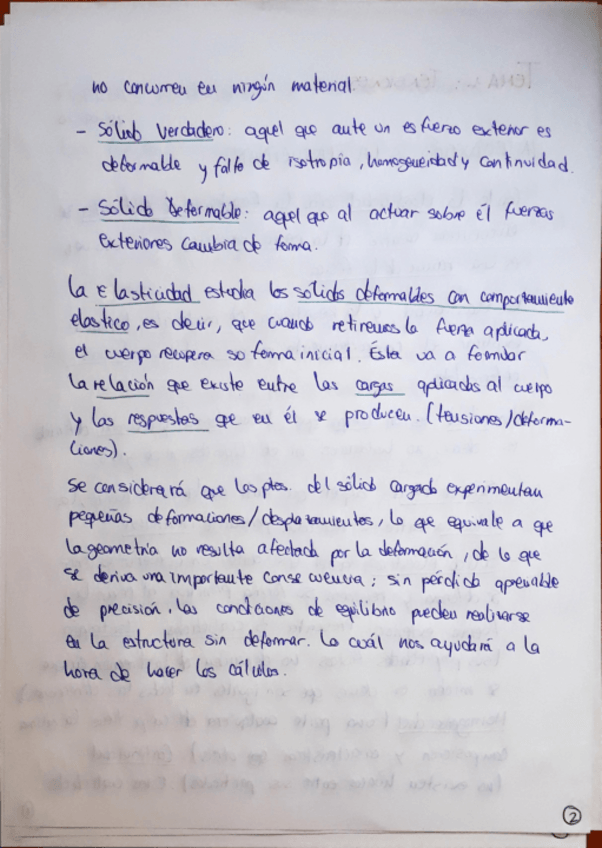 no concurren en ningún material.
- Sólido verdadero: aquel que ante un esfuerzo exterior es
deformable y falto de isotropía, homogeneidad y continuidad.
- Sólido deformable: aquel que al actuar sobre él fuerzas
exteriores cambia de forma.
La Elasticidad estudia los sólidos deformables con comportamiento
elástico, es decir, que cuando retiremos la fuerza aplicada,
el cuerpo recupera su forma inicial. Ésta va a formular
la relación que existe entre las cargas aplicadas al cuerpo
y las respuestas que en él se producen. (tensiones/deforma-
ciones).
Se considerará que los ptos. del sólido cargado experimentan
pequeñas deformaciones/desplazamientos, lo que equivale a que
la geometría no resulta afectada por la deformación, de lo que
se deriva una importante consecuencia; sin pérdida apreciable
de precisión, las condiciones de equilibrio pueden realizarse
en la estructura sin deformar. Lo cuál nos ayudará a la
hora de hacer los cálculos.
2